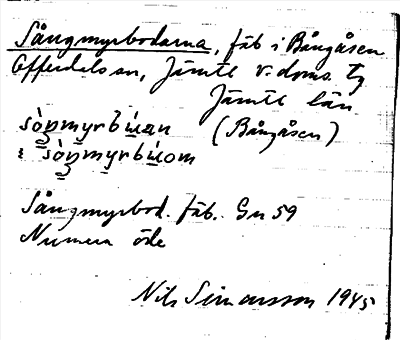 Sångmyrbodarna, fäb i Bångåsen
Offerdals sn, Jämtl v. doms. tg
Jämtl län
sòŋmyrbúan (Bångåsen)
i sòŋmyrbúom
Sångmyrbod. fäb. Gn 59
Numera öde
Nils Simonsson 1945